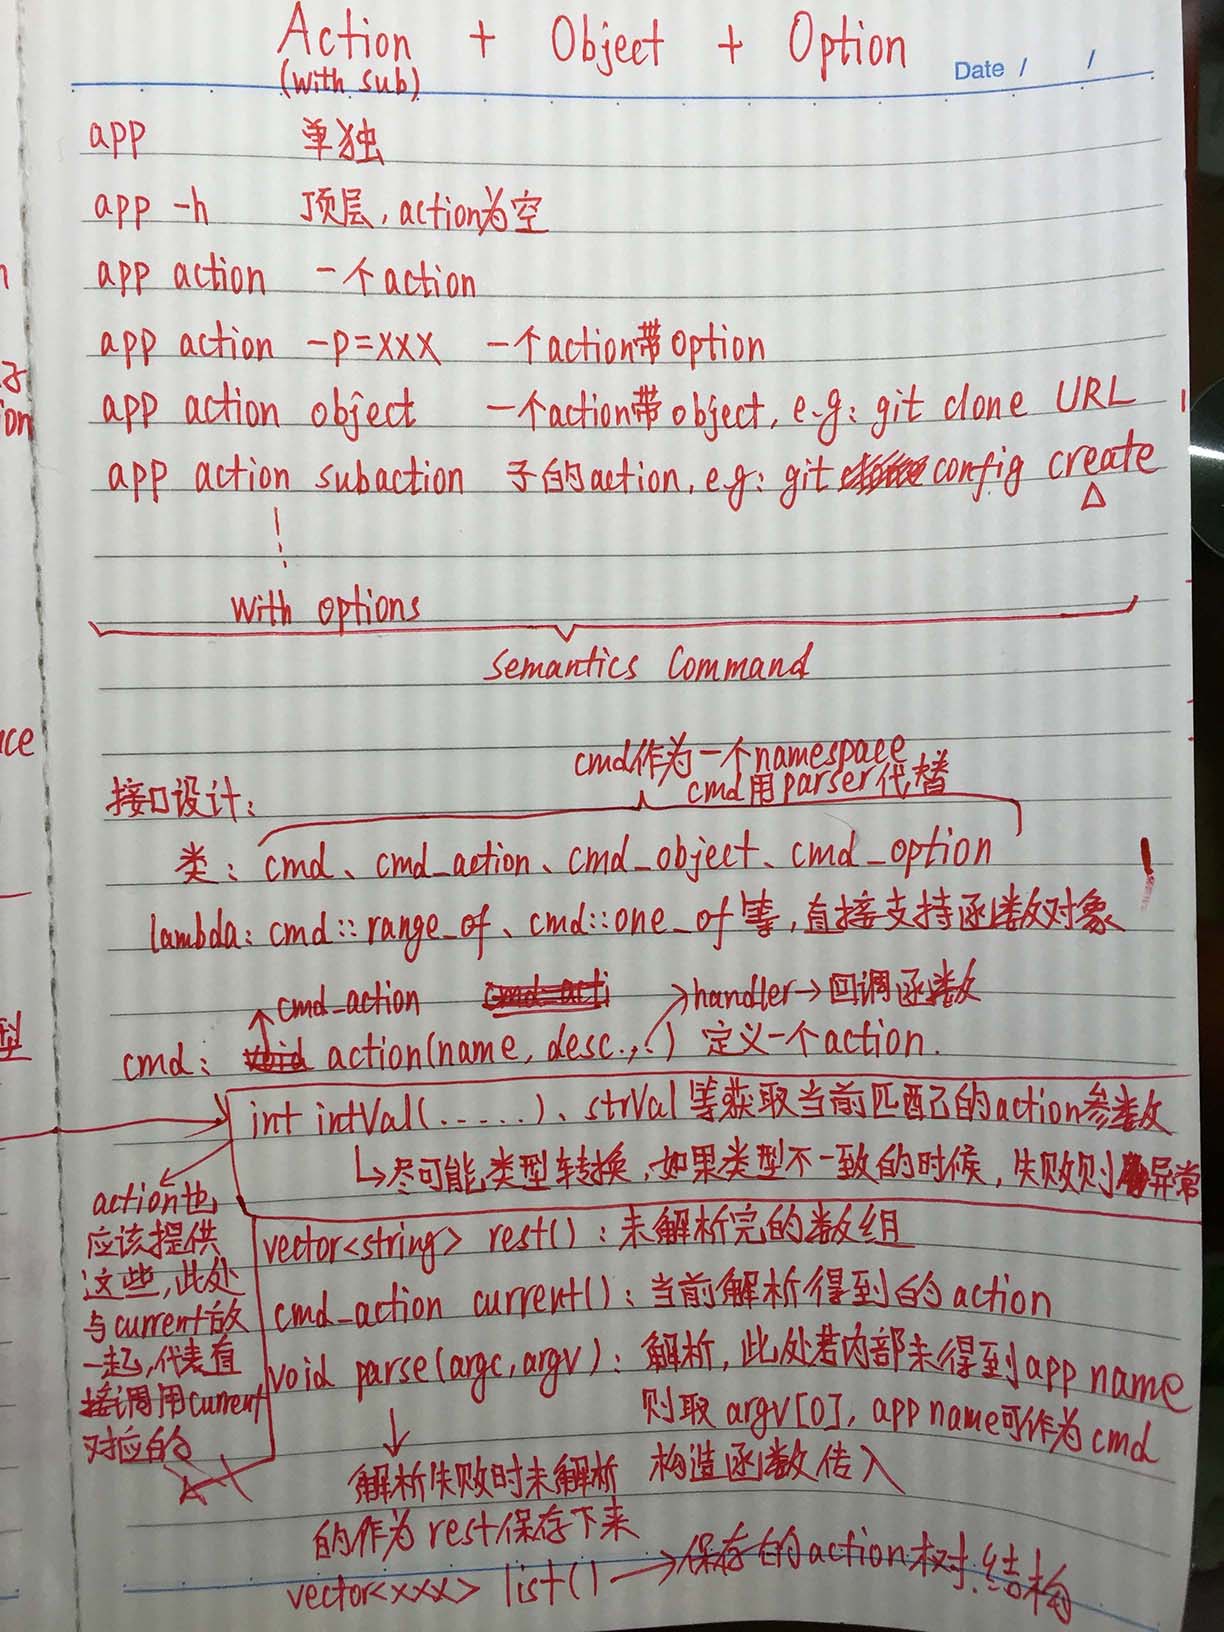 Action + Object + Option
(with sub)
Date / /
app 单独
app -h 顶层, action为空
app action 一个action
app action -p=xxx 一个action带option
app action object 一个action带object, e.g: git clone URL
app action subaction 子的action, e.g: git config create
with options
Semantics Command
cmd作为一个namespace
cmd用parser代替
接口设计:
类: cmd、cmd_action、cmd_object、cmd_option
lambda: cmd::range_of、cmd::one_of等, 直接支持函数对象
cmd_action cmd_acti handler→回调函数
cmd: void action(name, desc., .) 定义一个action.
int intVal(......)、strVal等获取当前匹配的action参数
↳尽可能类型转换, 如果类型不一致的时候, 失败则异常
action也
应该提供
这些, 此处
与current放
一起, 代表直
接调用current
对应的
vector<string> rest(): 未解析完的数组
cmd_action current(): 当前解析得到的action
void parse(argc, argv): 解析, 此处若内部未得到app name
则取argv[0], app name可作为cmd
构造函数传入
解析失败时未解析
的作为rest保存下来
vector<xxx> list() →保存的action树结构